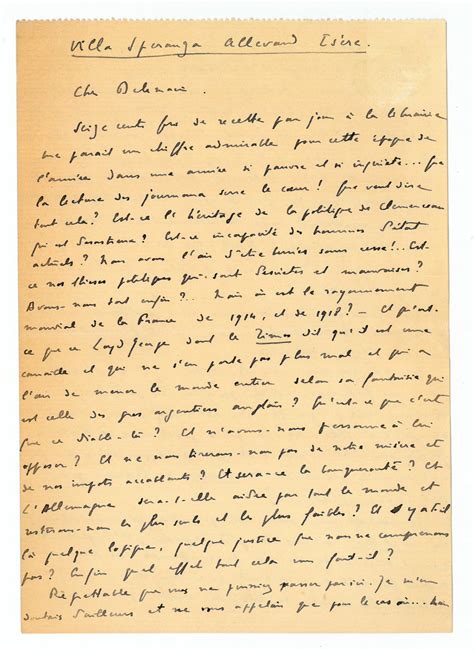 Villa Speranza Allevard Isère.
Cher Delamain.
Seize cents frs de recette par jour à la librairie
me paraît un chiffre admirable pour cette époque de
l'année dans une année si pauvre et si inquiète... que
la lecture des journaux serre le cœur! Que veut dire
tout cela? Est-ce l'héritage de la politique de Clemenceau
qui est désastreux? Est-ce incapacité des hommes d'état
actuels? Nous avons l'air d'être bernés sans cesse!.. Est-
ce nos thèses politiques qui sont et mauvaises?
Avons-nous tort enfin?.. Mais où est le rayonnement
mondial de la France de 1914, et de 1918? - Et qu'est-
ce que ce Loyd George dont le Times dit qu'il est une
canaille et qui ne s'en porte pas plus mal et qui a
l'air de mener le monde entier selon sa fantaisie qui
est celle des gros argentiers anglais? Qu'est-ce que c'est
que ce diable-là? Et n'avons-nous personne à lui
opposer? Et ne nous tirerons-nous pas de notre misère et
de nos impots accablants? Et sera-ce la banqueroute? Et
l'Allemagne sera-t-elle aidée par tout le monde et
resterons-nous les plus seuls et les plus faibles? Et y a t il
là quelque logique, quelque justice que nous ne comprenons
pas? Enfin quel effet tout cela vous fait-il?
Regrettable que vous ne puissiez passer par ici. Je m'en
doutais d'ailleurs et ne vous appelais que pour le cas où... Mon